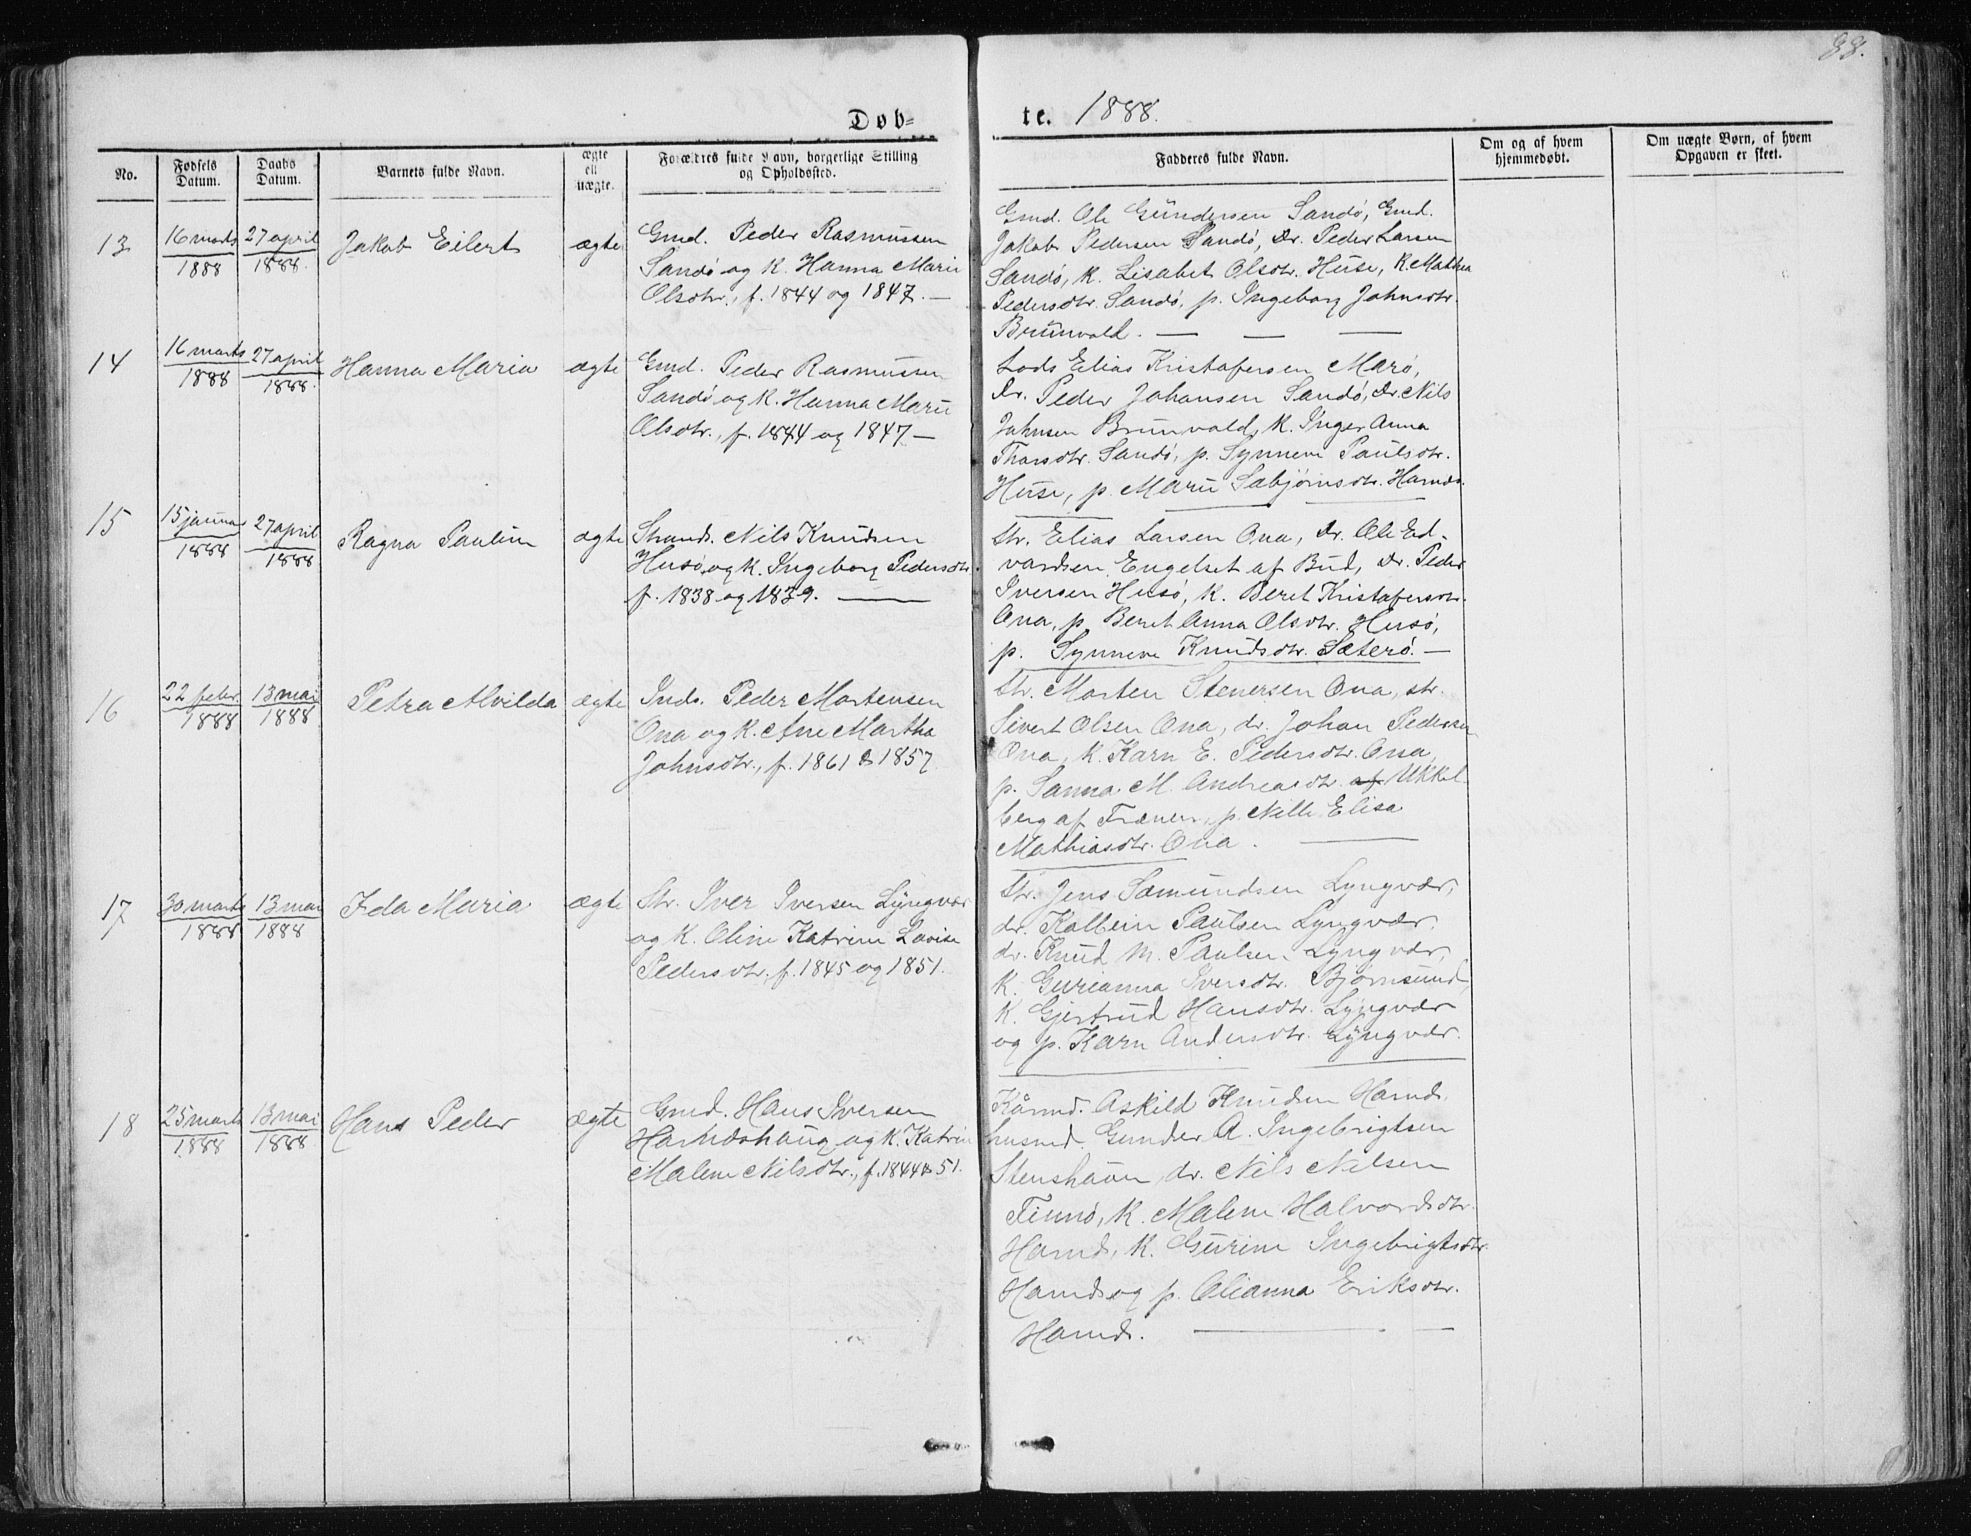 88.
Døb= te. 1888.
No.
Fødsels Datum.
Daabs Datum.
Barnets fulde Navn.
ægte ell uægte.
Forældres fulde Navn, borgerlige Stilling og Opholdssted.
Faddernes fulde Navn.
Om og af hvem hjemmedøbt.
Om uægte Børn, af hvem Opgaven er skeet.
13
16 marts 1888
27 april 1888.
Jakob Eilert
ægte
Gmd. Peder Rasmussen
Sandø og K. Hanna Marie
Olsdtr., f. 1844 og 1847. —
Gmd. Ole Gundersen Sandø, Gmd.
Jakob Pedersen Sandø, Dr. Peder Larsen
Sandø, K. Lisabet Olsdtr. Huse, K. Mathea
Pedersdtr. Sandø, p. Ingeborg Johnsdtr.
Brunvold. — — —
14
16 marts 1888
27 april 1888.
Hanna Maria
ægte
Gmd. Peder Rasmussen
Sandø og K. Hanna Marie
Olsdtr., f. 1844 og 1847 —
Lods Elias Kristofersen Marø,
Dr. Peder Johansen Sandø, Dr. Nils
Johnsen Brunvold, K. Inger Anna
Thorsdtr. Sandø, p. Synneve Paulsdtr.
Huse, p. Marie Sæbjørnsdtr. Harnds.
15
15 januar 1888
27 april 1888
Ragna Pauline
ægte
Strands. Nils Knudsen
Husø, og K. Ingeborg Pedersdtr.
f. 1838 og 1839. —
Str. Elias Larsen Ona, Dr. Ole Ed-
vardsen Engelset af Bud, Dr. Peder
Iversen Husø, K. Beret Kristofersdtr.
Ona, p. Beret Anna Olsdtr. Husø,
p. Synneve Knudsdtr. Sæterø. —
16
22 febr. 1888
13 mai 1888
Petra Alvilda
ægte
Inds. Peder Mortensen
Ona og K. Ane Martha
Johnsdtr., f. 1861 & 1857.
Str. Morten Stenersen Ona, str.
Sivert Olsen Ona, dr. Johan Pedersen
Ona, K. Karn E. Pedersdtr. Ona,
p. Sanna M. Andreasdtr. af Ukkel
berg af Frænen, p. Nille Elisa
Mathiasdtr. Ona. —
17
30 marts 1888
13 mai 1888
Ida Maria
ægte
Str. Iver Iversen Lyngvær
og K. Oline Katrine Lovise
Pedersdtr. f. 1845 og 1851.
Str. Jens Sæmundsen Lyngvær,
dr. Kolbein Paulsen Lyngvær,
dr. Knud M. Paulsen Lyngvær,
K. Gurianna Iversdtr. Bjørnsund,
K. Gjertrud Hansdtr. Lyngvær
og p. Karn Andersdtr. Lyngvær.
18
25 marts 1888
13 mai 1888
Hans Peder
ægte
Gmd. Hans Iversen
Harnæshaug og K. Katrine
Malene Nilsdtr., f. 1844 & 51.
Kårmd. Askild Knudsen Harnds.
husmd. Gunder A. Ingebrigtsen
Stenshavn, dr. Nils Nilsen
Finnø, K. Malene Halvordsdtr.
Harnds, K. Gurine Ingebrigtsdtr.
Harnds og p. Olianna Eriksdtr.
Harnds. — —